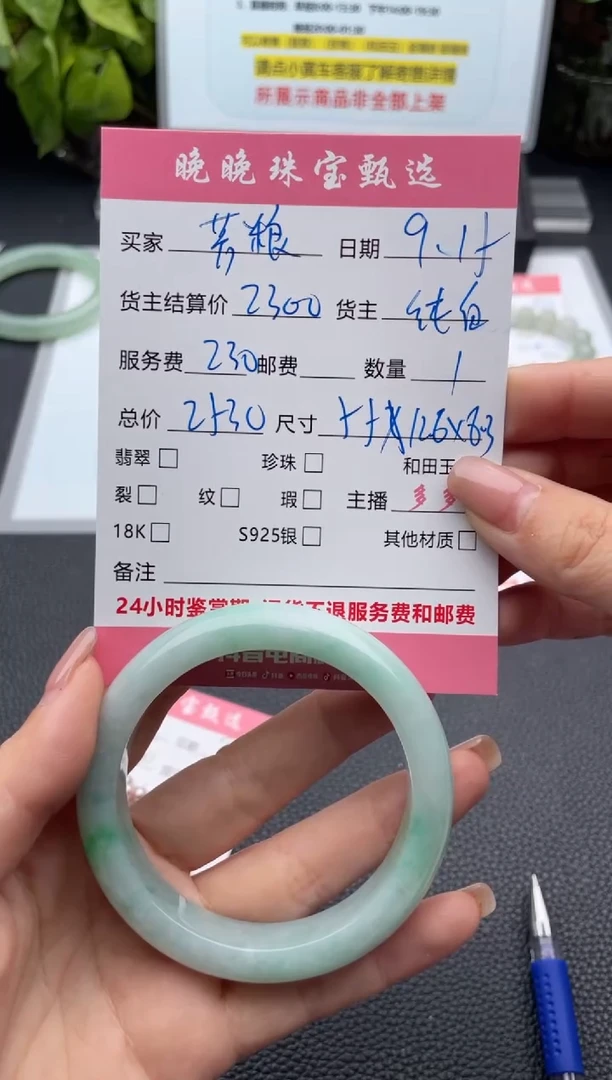 满点小黄车客服了解老普洋情
所展示商品非全部上架
晚晚珠宝甄选
买家 荞粮 日期 9.15
货主结算价 2300 货主 纯白
服务费 230 邮费 数量 1
总价 2530 尺寸
翡翠 珍珠 和田玉
裂 纹 瑕 主播 多多
18K S925银 其他材质
备注
24小时鉴赏期 退服务费和邮费